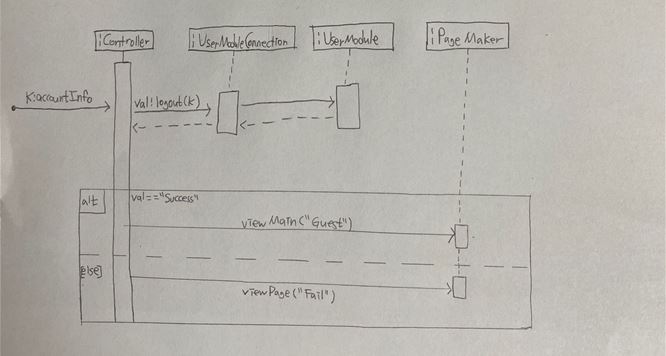 :Controller
:UserModuleConnection
:UserModule
:PageMaker
K:accountInfo
val:logout(K)
alt
val=="Success"
viewMain("Guest")
[else]
viewPage("Fail")